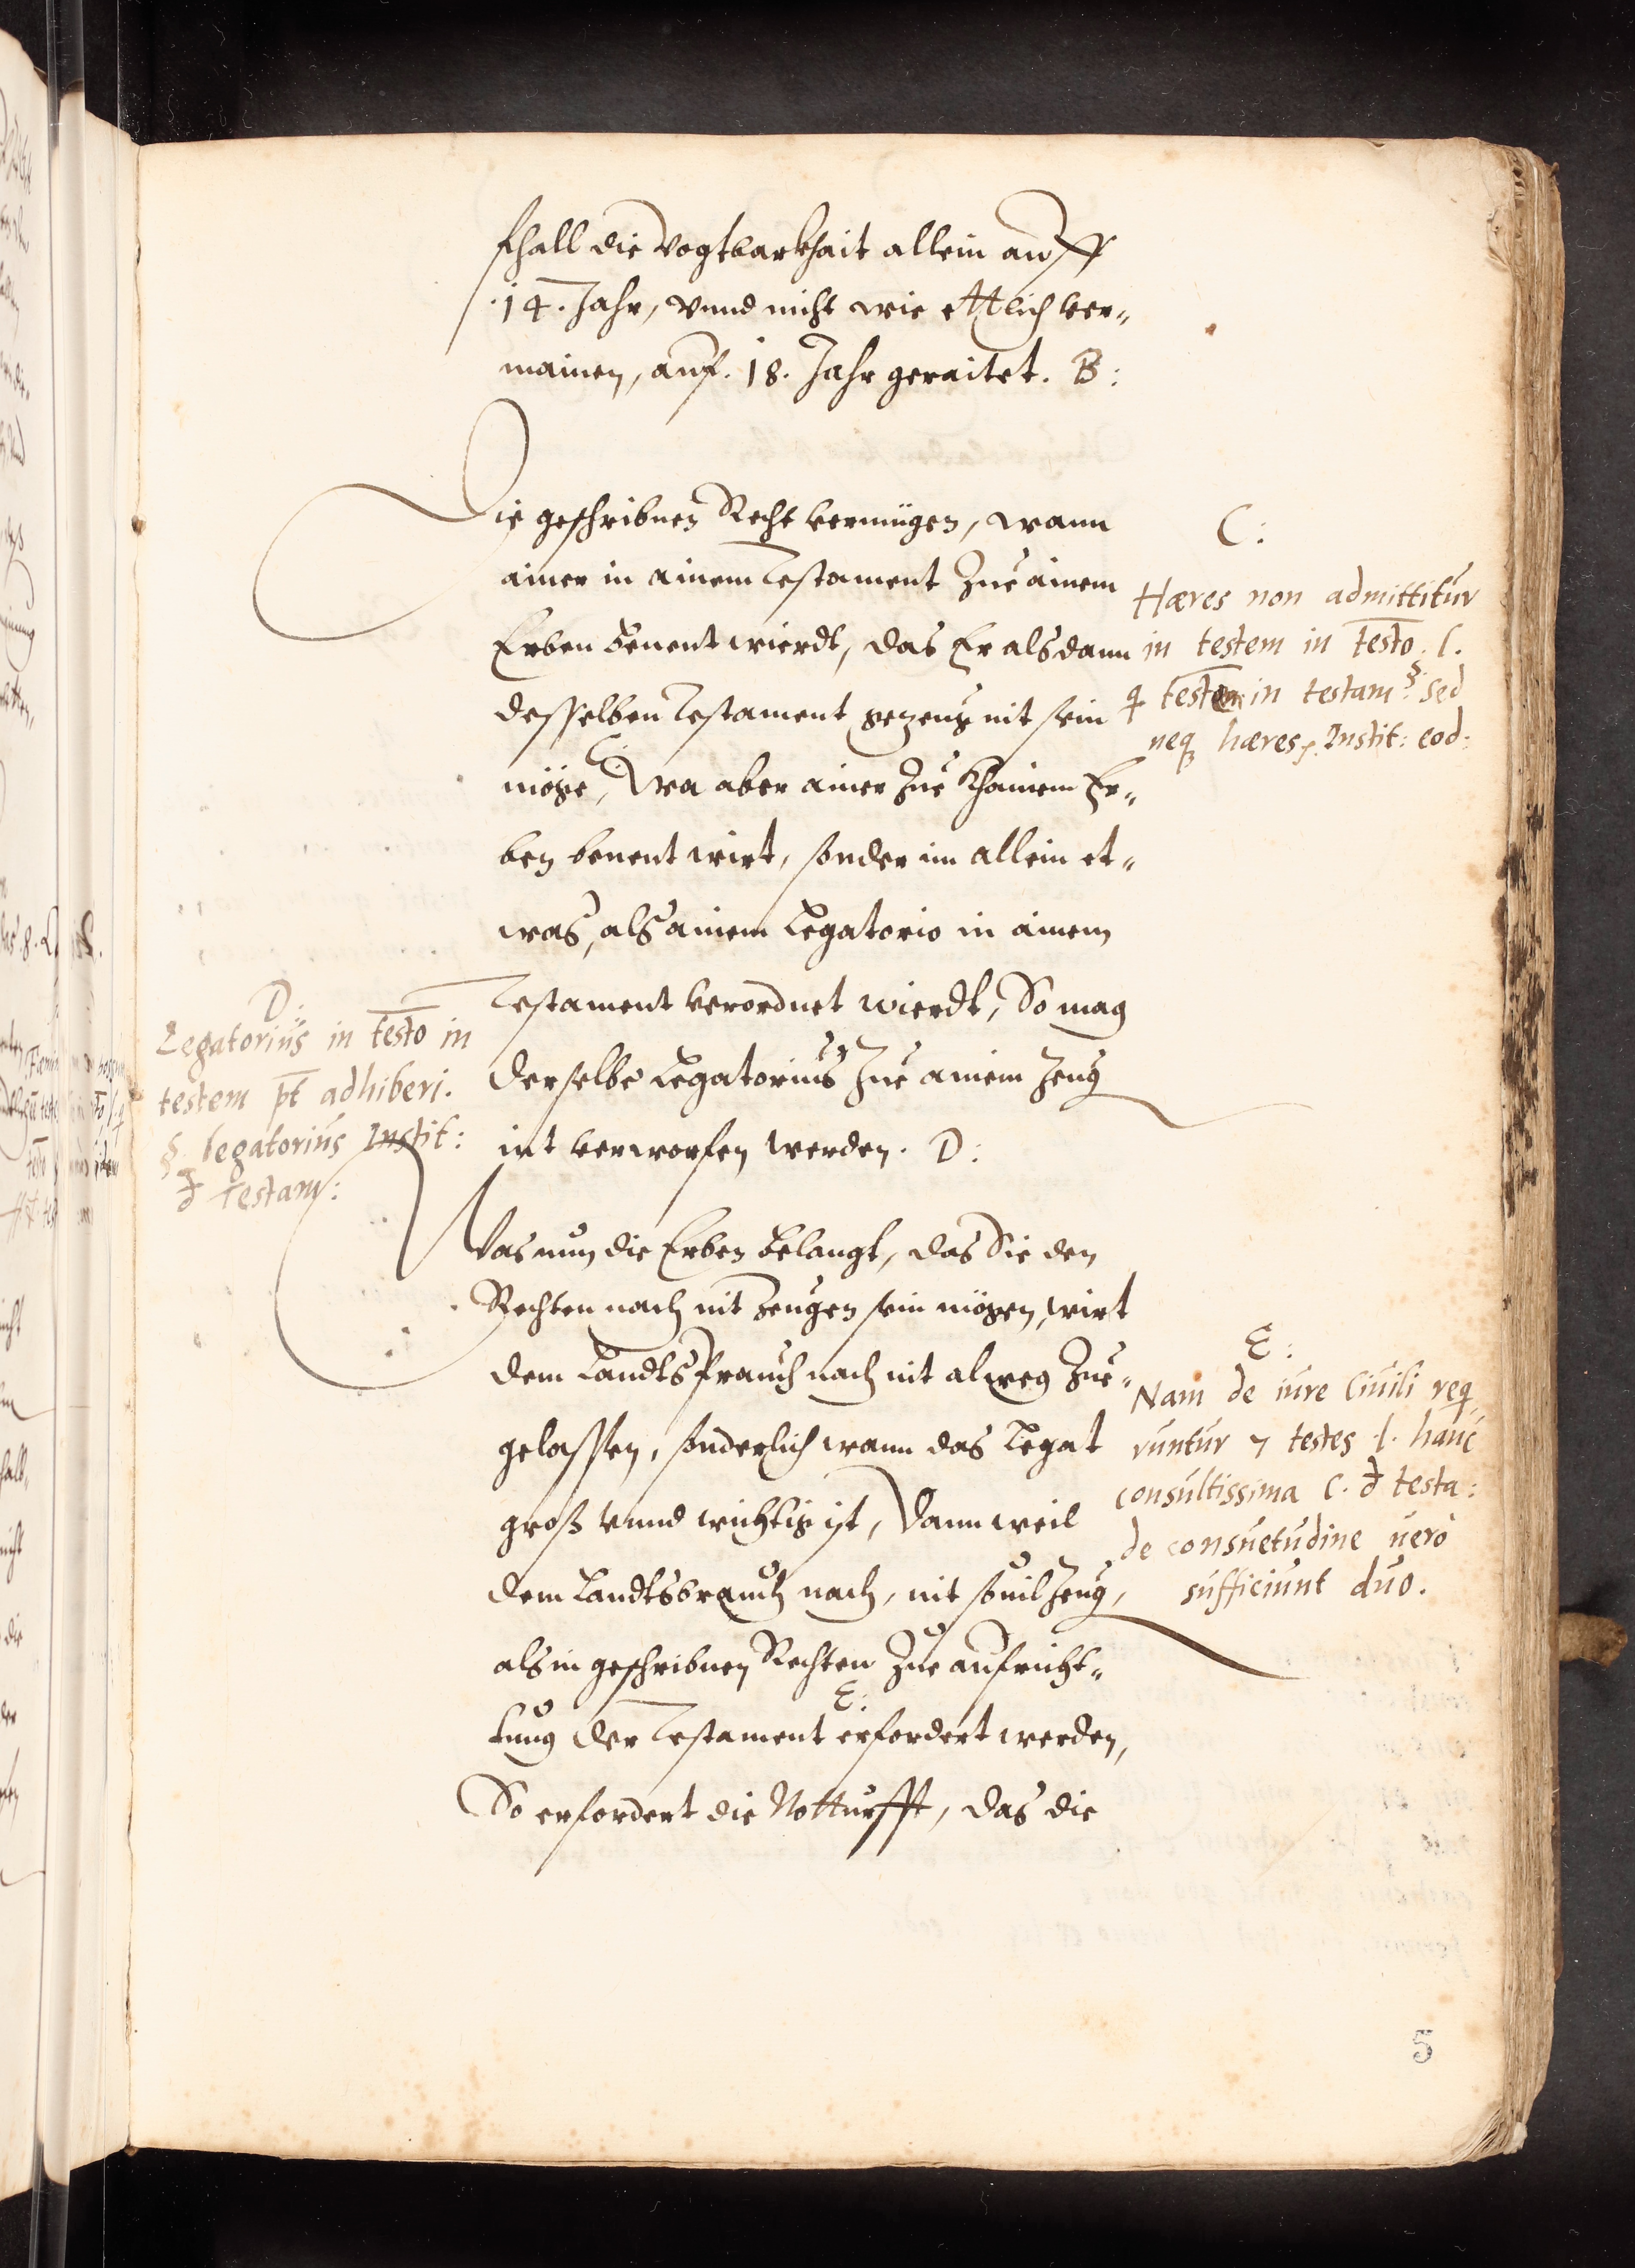 fhall die Vogtbarkhait allein auff
.14. Jahr, vnnd nicht wie ettlich ver„
mainen, auf. 18. Jahr geraitet. B:
Die geschribnen Recht vermügen, wann
ainer in ainem Testament Zue ainem
Erben benent wierdt, das Er alsdann
desselben Testament gezeug nit sein
C:
möge, Wa aber ainer Zue khainem Er„
ben benent wirt, sonder im allein et„
was, als ainem Legatorio in ainem
Testament verordnet wierdt, So mag
derselbe Legatorius Zue ainem Zeug
nit verworfen werden. D:
Was nun die Erben belangt, das Sie den
Rechten nach nit Zeugen sein mögen, wirt
dem Landtsprauch nach nit alweg Zue„
gelassen, sonderlich wann das Legat
groß vnnd wichtig ist, Dann weil
dem Landtsbrauch nach, nit souil Zeug,
als in geschribnen Rechten Zue aufricht„
E:
tung der Testament erfordert werden,
So erfordert die Notturfft, das die
C:
Hæres non admittitur
in testem in testo. l.
testem in testam: § sed
neq hæres. Instit: eod:
D:
Legatorius in testo in
testem pt adhiberi.
§. legatorius Instit:
đ testam:
E:
Nam de iure Ciuili req
runtur 7 testes l. hanc
consultissima C. đ testa:
de consuetudine uero
sufficiunt duo.
5